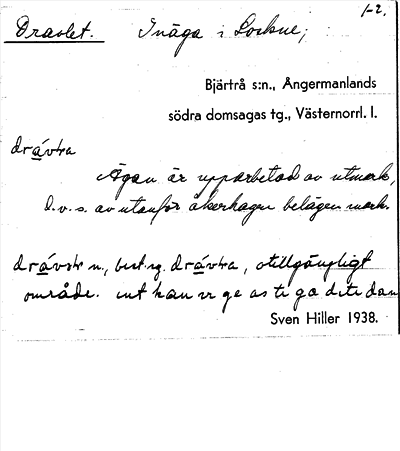 1-2.
Dravlet. Inäga i Lockne,
Bjärtrå s:n., Ångermanlands
södra domsagas tg., Västernorrl. l.
drávtra
Ägan är upparbetad av utmark,
d.v.s. av utanför åkerhagen belägen mark.
drávtr n., best. sg. drávtra, otillgängligt
område. int kan ge as te ga dan
Sven Hiller 1938.